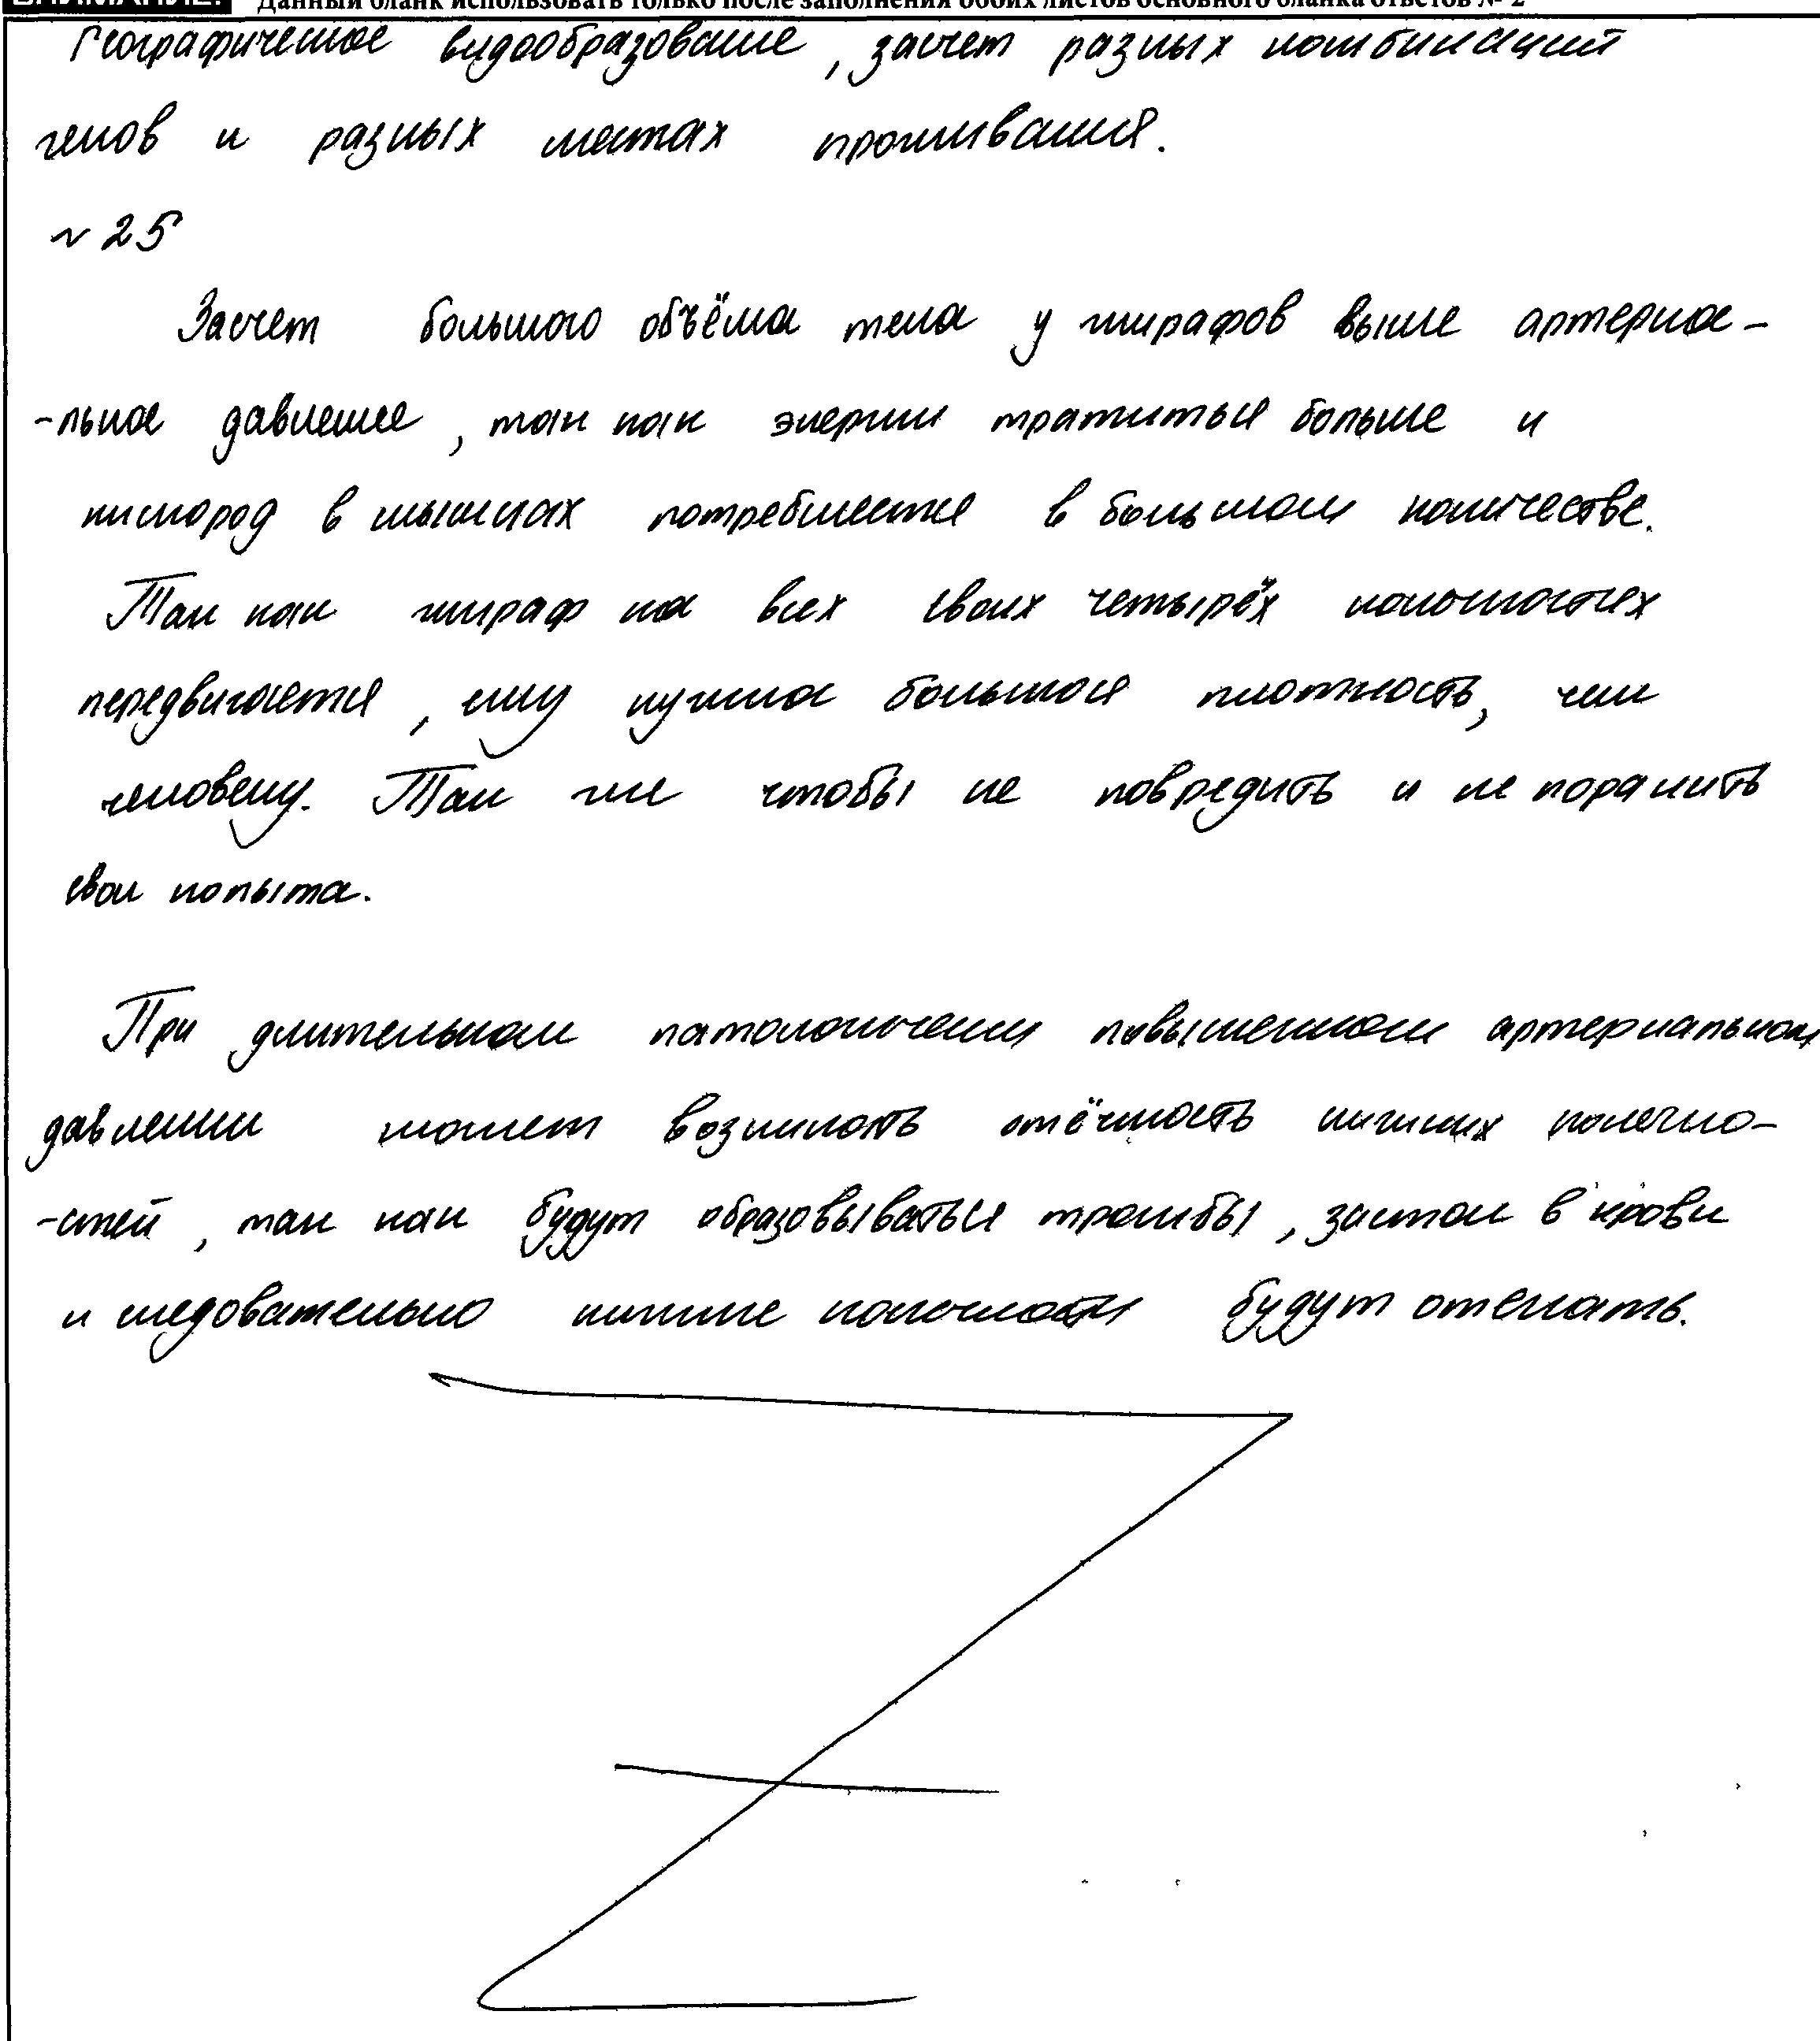 ВНИМАНИЕ! Данный бланк использовать только после заполнения обоих листов основного бланка ответов № 2
Географическое видообразование, засчет разных комбинаций
генов и разных местах проживания.
~ 25
Засчет большого объёма тела у жирафов выше артериа-
-льное давление, так как энергии тратиться больше и
кислород в мышцах потребляется в большом количестве.
Так как жираф на всех своих четырёх конечностях
передвигается, ему нужна большая плотность, чем
человеку. Так же чтобы не повредить и не поранить
свои копыта.
При длительном патологическом повышенном артериальном
давлении может возникать отёчность нижних конечно-
-стей, так как будут образовываться тромбы, застои в крови
и следовательно нижние конечности будут отекать.